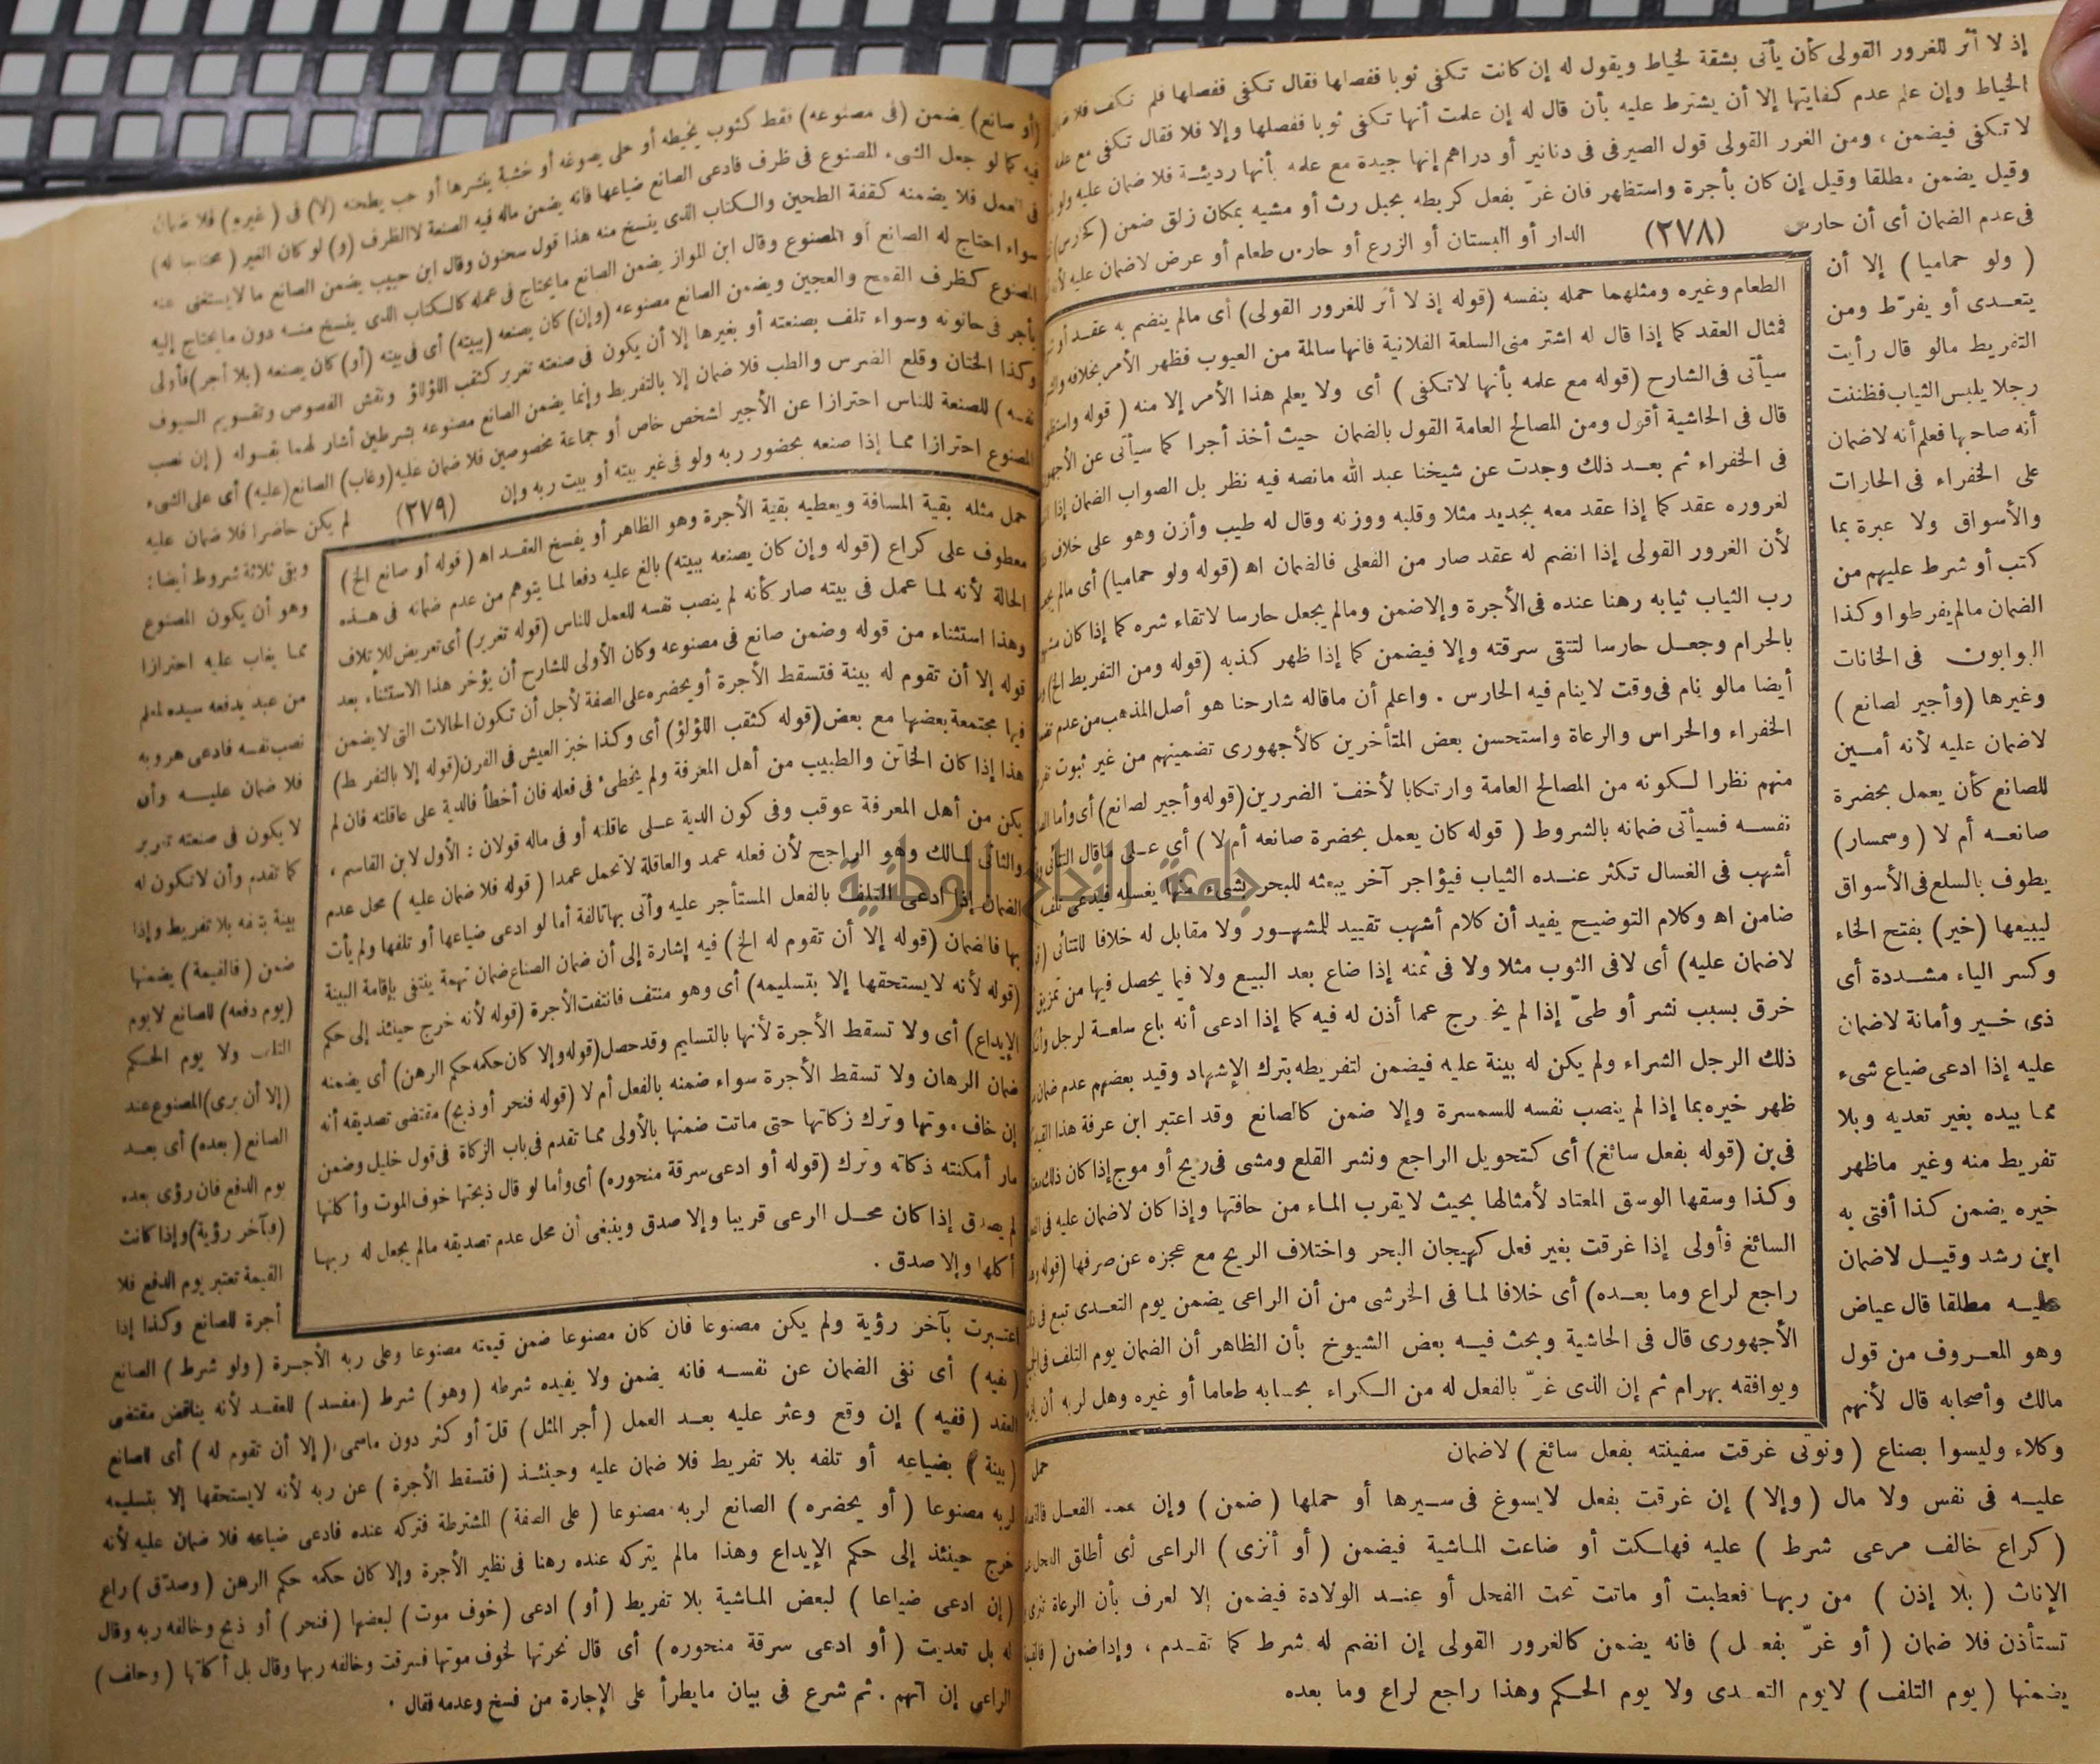 إذ لا أثر للغرور القولى كأن يأتى بشقة لخياط ويقول له إن كانت تكفى ثوبا ففصلها فقال تكفى ففصلها فلم تكف فلا
الخياط وإن علم عدم كفايتها إلا أن يشترط عليه بأن قال له إن علمت أنها تكفى ثوبا ففصلها وإلا فلا فقال تكفى مع علمه
لا تكفى فيضمن ، ومن الغرر القولى قول الصيرفى فى دنانير أو دراهم إنها جيدة مع علمه بأنها رديئة فلا ضمان عليه ولو
وقيل يضمن مطلقا وقيل إن كان بأجرة واستظهر فان غرّ بفعل كربطه بحبل رث أو مشيه بمكان زلق ضمن (كحارس)
فى عدم الضمان أى أن حارس (٢٧٨) الدار أو البستان أو الزرع أو حارس طعام أو عرض لاضمان عليه
( ولو حماميا ) إلا أن
يتعدى أو يفرّط ومن
التفريط مالو قال رأيت
رجلا يلبس الثياب فظننت
أنه صاحبها فعلم أنه لاضمان
على الخفراء فى الحارات
والأسواق ولا عبرة بما
كتب أو شرط عليهم من
الضمان مالم يفرطوا وكذا
البوابون فى الخانات
وغيرها (وأجير لصانع )
لاضمان عليه لأنه أمين
للصانع كأن يعمل بحضرة
صانعه أم لا ( وسمسار)
يطوف بالسلع فى الأسواق
ليبيعها (خير) بفتح الخاء
وكسر الياء مشددة أى
ذى خير وأمانة لاضمان
عليه إذا ادعى ضياع شىء
مما بيده بغير تعديه وبلا
تفريط منه وغير ماظهر
خيره يضمن كذا أفتى به
ابن رشد وقيل لاضمان
عليه مطلقا قال عياض
وهو المعروف من قول
مالك وأصحابه قال لأنهم
وكلاء وليسوا بصناع ( ونوتى غرقت سفينته بفعل سائغ ) لاضمان
عليه فى نفس ولا مال ( وإلا ) إن غرقت بفعل لايسوغ فى سيرها أو حملها ( ضمن ) وإن عمد الفعل
( كراع خالف مرعى شرط ) عليه فهلكت أو ضاعت الماشية فيضمن ( أو أنزى ) الراعى أى أطلق الفحل
الإناث ( بلا إذن ) من ربها فعطبت أو ماتت تحت الفحل أو عند الولادة فيضمن إلا لعرف بأن الرعاة
تستأذن فلا ضمان ( أو غرّ بفعل ) فانه يضمن كالغرور القولى إن انضم له شرط كما تقدم ، وإذا ضمن
يضمنها ( يوم التلف ) لايوم التعدى ولا يوم الحكم وهذا راجع لراع وما بعده
الطعام وغيره ومثلهما حمله بنفسه (قوله إذ لا أثر للغرور القولى) أى مالم ينضم به عقد أو
فمثال العقد كما إذا قال له اشتر منى السلعة الفلانية فانها سالمة من العيوب فظهر الأمر بخلافه
سيأتى فى الشارح (قوله مع علمه بأنها لاتكفى ) أى ولا يعلم هذا الأمر إلا منه ( قوله
قال فى الحاشية أقول ومن المصالح العامة القول بالضمان حيث أخذ أجرا كما سيأتى عن
فى الخفراء ثم بعد ذلك وجدت عن شيخنا عبد الله مانصه فيه نظر بل الصواب الضمان إذا
لغروره عقد كما إذا عقد معه بجديد مثلا وقلبه ووزنه وقال له طيب وأزن وهو على خلاف
لأن الغرور القولى إذا انضم له عقد صار من الفعلى فالضمان اه (قوله ولو حماميا) أى مالم
رب الثياب ثيابه رهنا عنده فى الأجرة وإلا ضمن ومالم يجعل حارسا لاتقاء شره كما إذا كان
بالحرام وجعل حارسا لتتقى سرقته وإلا فيضمن كما إذا ظهر كذبه (قوله ومن التفريط الخ)
أيضا مالو نام فى وقت لاينام فيه الحارس . واعلم أن ماقاله شارحنا هو أصل المذهب من عدم
الخفراء والحراس والرعاة واستحسن بعض المتأخرين كالأجهورى تضمينهم من غير ثبوت
منهم نظرا لكونه من المصالح العامة وارتكابا لأخف الضررين (قوله وأجير لصانع) أى وأما
نفسه فسيأتى ضمانه بالشروط ( قوله كان يعمل بحضرة صانعه أم لا ) أى على ماقال التتائى
أشهب فى الغسال تكثر عنده الثياب فيؤاجر آخر يبعثه للبحر لشىء منها يغسله فيدعى تلف
ضامن اه وكلام التوضيح يفيد أن كلام أشهب تقييد للمشهور ولا مقابل له خلافا للتتائى
لاضمان عليه) أى لافى الثوب مثلا ولا فى ثمنه إذا ضاع بعد البيع ولا فيما يحصل فيها من تمزيق
خرق بسبب نشر أو طىّ إذا لم يخرج عما أذن له فيه كما إذا ادعى أنه باع سلعة لرجل
ذلك الرجل الشراء ولم يكن له بينة عليه فيضمن لتفريطه بترك الإشهاد وقيد بعضهم عدم
ظهر خيره بما إذا لم ينصب نفسه للسمسرة وإلا ضمن كالصانع وقد اعتبر ابن عرفة هذا
فى بن (قوله بفعل سائغ) أى كتحويل الراجع ونشر القلع ومشى فى ريح أو موج إذا كان ذلك
وكذا وسقها الوسق المعتاد لأمثالها بحيث لايقرب الماء من حافتها وإذا كان لاضمان عليه
السائغ فأولى إذا غرقت بغير فعل كهيجان البحر واختلاف الريح مع عجزه عن صرفها
راجع لراع وما بعده) أى خلافا لما فى الخرشى من أن الراعى يضمن يوم التعدى تبع
الأجهورى قال فى الحاشية وبحث فيه بعض الشيوخ بأن الظاهر أن الضمان يوم التلف
ويوافقه بهرام ثم إن الذى غرّ بالفعل له من الكراء بحسابه طعاما أو غيره وهل لربه أن
حمل
(أو صانع) يضمن (فى مصنوعه) فقط كثوب يخيطه أو حلى يصوغه أو خشبة ينشرها أو حب يطحنه (لا) فى (غيره) فلا ضمان
فيه كما لو جعل الشىء المصنوع فى ظرف فادعى الصانع ضياعها فانه يضمن ماله فيه الصنعة لا الظرف (و) لو كان الغير ( محتاجا له)
فى العمل فلا يضمنه كقفة الطحين والكتاب الذى ينسخ منه هذا قول سحنون وقال ابن حبيب يضمن الصانع ما لا يستغنى عنه
سواء احتاج له الصانع أو المصنوع وقال ابن المواز يضمن الصانع مايحتاج فى عمله كالكتاب الذى ينسخ منه دون مايحتاج إليه
المصنوع كظرف القمح والعجين ويضمن الصانع مصنوعه (وإن) كان يصنعه (ببيته) أى فى بيته (أو) كان يصنعه (بلا أجر) فأولى
بأجر فى حانوته وسواء تلف بصنعته أو بغيرها إلا أن يكون فى صنعته تغرير كثقب اللؤلؤ ونقش الفصوص وتقويم السيوف
وكذا الختان وقلع الضرس والطب فلا ضمان إلا بالتفريط وإنما يضمن الصانع مصنوعه بشرطين أشار لهما بقوله ( إن نصب
نفسه) للصنعة للناس احترازا عن الأجير لشخص خاص أو جماعة مخصوصين فلا ضمان عليه (وغاب) الصانع (عليه) أى على الشىء
المصنوع احترازا مما إذا صنعه بحضور ربه ولو فى غير بيته أو بيت ربه وإن (٢٧٩) لم يكن حاضرا فلا ضمان عليه
وبقى ثلاثة شروط أيضا :
وهو أن يكون المصنوع
مما يغاب عليه احترازا
من عبد يدفعه سيده لمعلم
نصب نفسه فادعى هروبه
فلا ضمان عليه وأن
لا يكون فى صنعته تغرير
كما تقدم وأن لا تكون له
بينة بتلفه بلا تفريط وإذا
ضمن ( فالقيمة) يضمنها
(يوم دفعه) للصانع لايوم
التلف ولا يوم الحكم
(إلا أن يرى) المصنوع عند
الصانع ( بعده) أى بعد
يوم الدفع فان رؤى بعده
(فبآخر رؤية) وإذا كانت
القيمة تعتبر يوم الدفع فلا
أجرة للصانع وكذا إذا
اعتبرت بآخر رؤية ولم يكن مصنوعا فان كان مصنوعا ضمن قيمته مصنوعا وعلى ربه الأجرة ( ولو شرط ) الصانع
( نفيه ) أى نفى الضمان عن نفسه فانه يضمن ولا يفيده شرطه ( وهو ) شرط ( مفسد ) للعقد لأنه يناقض مقتضى
العقد ( ففيه ) إن وقع وعثر عليه بعد العمل ( أجر المثل ) قلّ أو كثر دون ماسمى ( إلا أن تقوم له ) أى الصانع
( بينة ) بضياعه أو تلفه بلا تفريط فلا ضمان عليه وحينئذ ( فتسقط الأجرة ) عن ربه لأنه لايستحقها إلا بتسليمه
لربه مصنوعا ( أو يحضره ) الصانع لربه مصنوعا ( على الصفة ) المشترطة فتركه عنده فادعى ضياعه فلا ضمان عليه لأنه
خرج حينئذ إلى حكم الإيداع وهذا مالم يتركه عنده رهنا فى نظير الأجرة وإلا كان حكمه حكم الرهن ( وصدّق ) راع
( إن ادعى ضياعا ) لبعض الماشية بلا تفريط ( أو ) ادعى ( خوف موت ) لبعضها ( فنحر ) أو ذبح وخالفه ربه وقال
له بل تعديت ( أو ادعى سرقة منحوره ) أى قال نحرتها لخوف موتها فسرقت وخالفه ربها وقال بل أكلتها ( وحلف )
الراعى إن اتهم . ثم شرع فى بيان مايطرأ على الإجارة من فسخ وعدمه فقال .
حمل مثله بقية المسافة ويعطيه بقية الأجرة وهو الظاهر أو يفسخ العقد اه ( قوله أو صانع الخ )
معطوف على كراع (قوله وإن كان يصنعه ببيته) بالغ عليه دفعا لما يتوهم من عدم ضمانه فى هذه
الحالة لأنه لما عمل فى بيته صار كأنه لم ينصب نفسه للعمل للناس (قوله تغرير) أى تعريض للإتلاف
وهذا استثناء من قوله وضمن صانع فى مصنوعه وكان الأولى للشارح أن يؤخر هذا الاستثناء بعد
قوله إلا أن تقوم له بينة فتسقط الأجرة أو يحضره على الصفة لأجل أن تكون الحالات التى لايضمن
فيها مجتمعة بعضها مع بعض (قوله كثقب اللؤلؤ) أى وكذا خبز العيش فى الفرن (قوله إلا بالتفريط)
هذا إذا كان الخاتن والطبيب من أهل المعرفة ولم يخطئ فى فعله فان أخطأ فالدية على عاقلته فان لم
يكن من أهل المعرفة عوقب وفى كون الدية على عاقلته أو فى ماله قولان : الأول لابن القاسم ،
والثانى لمالك وهو الراجح لأن فعله عمد والعاقلة لاتحمل عمدا ( قوله فلا ضمان عليه ) محل عدم
الضمان إذا ادعى التلف بالفعل المستأجر عليه وأتى بها تالفة أما لو ادعى ضياعها أو تلفها ولم يأت
بها فالضمان (قوله إلا أن تقوم له الخ) فيه إشارة إلى أن ضمان الصناع ضمان تهمة ينتفى بإقامة البينة
(قوله لأنه لايستحقها إلا بتسليمه) أى وهو منتف فانتفت الأجرة (قوله لأنه خرج حينئذ إلى حكم
الإيداع) أى ولا تسقط الأجرة لأنها بالتسليم وقد حصل (قوله وإلا كان حكمه حكم الرهن) أى يضمنه
ضمان الرهان ولا تسقط الأجرة سواء ضمنه بالفعل أم لا (قوله فنحر أو ذبح) مقتضى تصديقه أنه
إن خاف موتها وترك زكاتها حتى ماتت ضمنها بالأولى مما تقدم فى باب الزكاة فى قول خليل وضمن
مار أمكنته ذكاته وترك (قوله أو ادعى سرقة منحوره) أى وأما لو قال ذبحتها خوف الموت وأكلتها
لم يصدق إذا كان محل الرعى قريبا وإلا صدق وينبغى أن محل عدم تصديقه مالم يجعل له ربها
أكلها وإلا صدق .
جامعة النجاح الوطنية